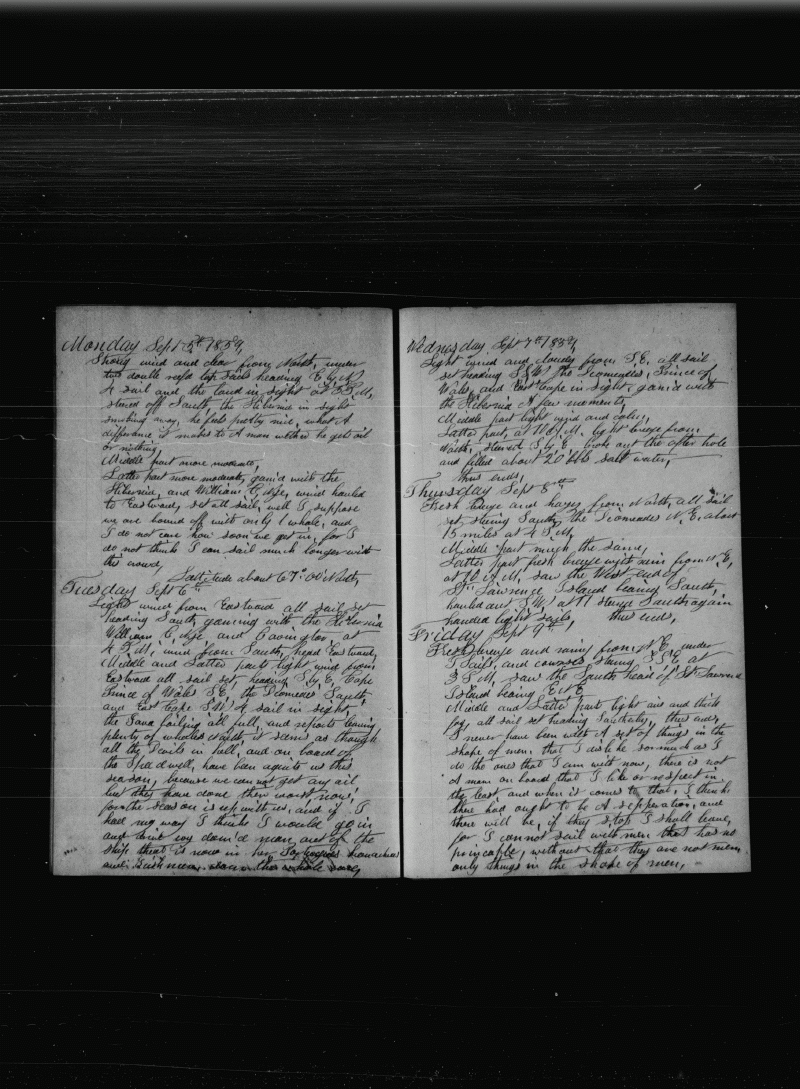 Monday Sept 5th 1859,
Strong wind and clear from North, under
two double refd top sails heading E by N,
4 sail and the land in sight at 3 P.M,
steered off South, the Hibernia in sight
smoking away, he feels pretty nice, what A
difference it makes to A man wether he gets oil
or nothing,
Middle part more moderate,
Latter part more moderate, gam'd with the
Hibernia, and William C, Nye, wind hauled
to Eastward, set all sail, well I suppose
we are bound off with only 1 whale, and
I do not care how soon we get in, for I
do not think I can sail much longer with
this crowd,
Latitude about 67°.00' North,
Tuesday Sept 6th
Light wind from Eastward all sail set
heading South, gaming with the Hibernia
William C, Nye, and Covington, at
4 P.M, wind from South, head Eastward,
Middle and Latter parts light wind from
Eastward all sail set, heading S, by E, Cape
Prince of Wales S E, the Diomedes South,
and East Cape S.W. 4 sail in sight,
the Java boiling all full, and reports leaving
plenty of whales North, it seems as though
all the Devils in hell, and on board of
the Speedwell, have been against us this
season, because we can not get any oil
but they have done their worst now,
for the season is up with us, and if I
had my way I think I would go in
and every dam'd man out of the
ship that is now in her,
and such men
Wednesday Sept 7th 1859,
Light wind and cloudy from S.E, all sail
set heading S.S.W, the Diomedes, Prince of
Wales, and East Cape in sight, gam'd with
the Hibernia A few moments,
Middle part light wind and calm,
Latter part, at 10 A.M. light breeze from
North, steered S, by E, broke out the after hole
and filled about 20 bbls salt water,
thus ends,
Thursday Sept 8th
Fresh breeze and hazey from North, all sail
set, stering South, the Diomedes N, E, about
15 miles at 4 P.M,
Middle part much the same,
Latter part fresh breeze with rain from N, E,
at 10 A.M. saw the West end of
St Lawrence Island bearing South,
hauled out S.W, at 11 sterd South again
handed light sails, thus ends,
Friday Sept 9th
Fresh breeze and rainy from N, E, under
T Sails, and courses, stering S.S.E, at
3 P.M. saw the South head of St Lawrence
Island bearing E.N.E,
Middle and Latter parts light airs and thick
fog, all sail set heading Southerly, thus ends,
I never have been with A set of things in the
shape of men that I dislike so much as I
do the ones that I am with now, there is not
A man on board that I like or respect in
the least, and when it comes to that, I think
there had ought to be A sepperation, and
there will be, if they stop I shall leave,
for I cannot sail with men that has no
princaple, without that they are not men
only things in the shape of men,